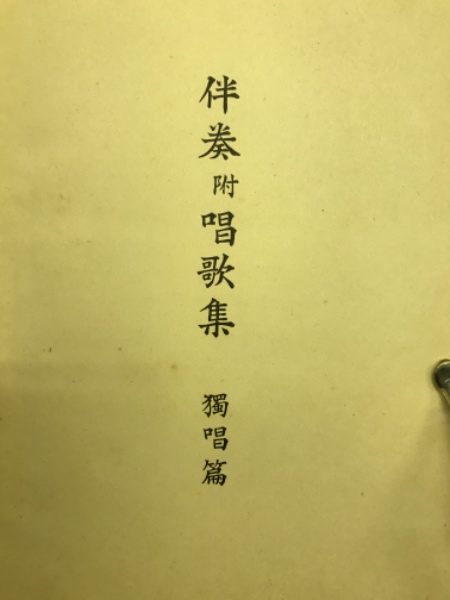 伴奏附唱歌集
獨唱篇